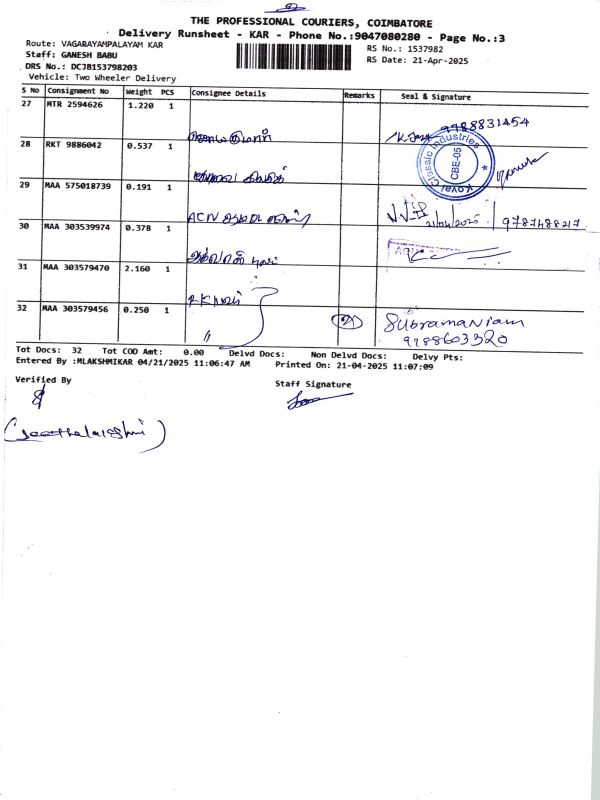 THE PROFESSIONAL COURIERS, COIMBATORE
Delivery Runsheet - KAR - Phone No.:9047080280 - Page No.:3
Route: VAGARAYAMPALAYAM KAR
RS No.: 1537982
Staff: GANESH BABU
RS Date: 21-Apr-2025
DRS No.: DCJB153798203
Vehicle: Two Wheeler Delivery
S No Consignment No Weight PCS Consignee Details Remarks Seal & Signature
27 MTR 2594626 1.220 1
9788831454
28 RKT 9886042 0.537 1
Koval Classic Industries
CBE-05
29 MAA 575018739 0.191 1
ACN
21/04/2025 9787488217
30 MAA 303539974 0.378 1
31 MAA 303579470 2.160 1
32 MAA 303579456 0.250 1
〃
2
Subramaniam
9788603320
Tot Docs: 32 Tot COD Amt: 0.00 Delvd Docs: Non Delvd Docs: Delvy Pts:
Entered By :MLAKSHMIKAR 04/21/2025 11:06:47 AM Printed On: 21-04-2025 11:07:09
Verified By
Staff Signature